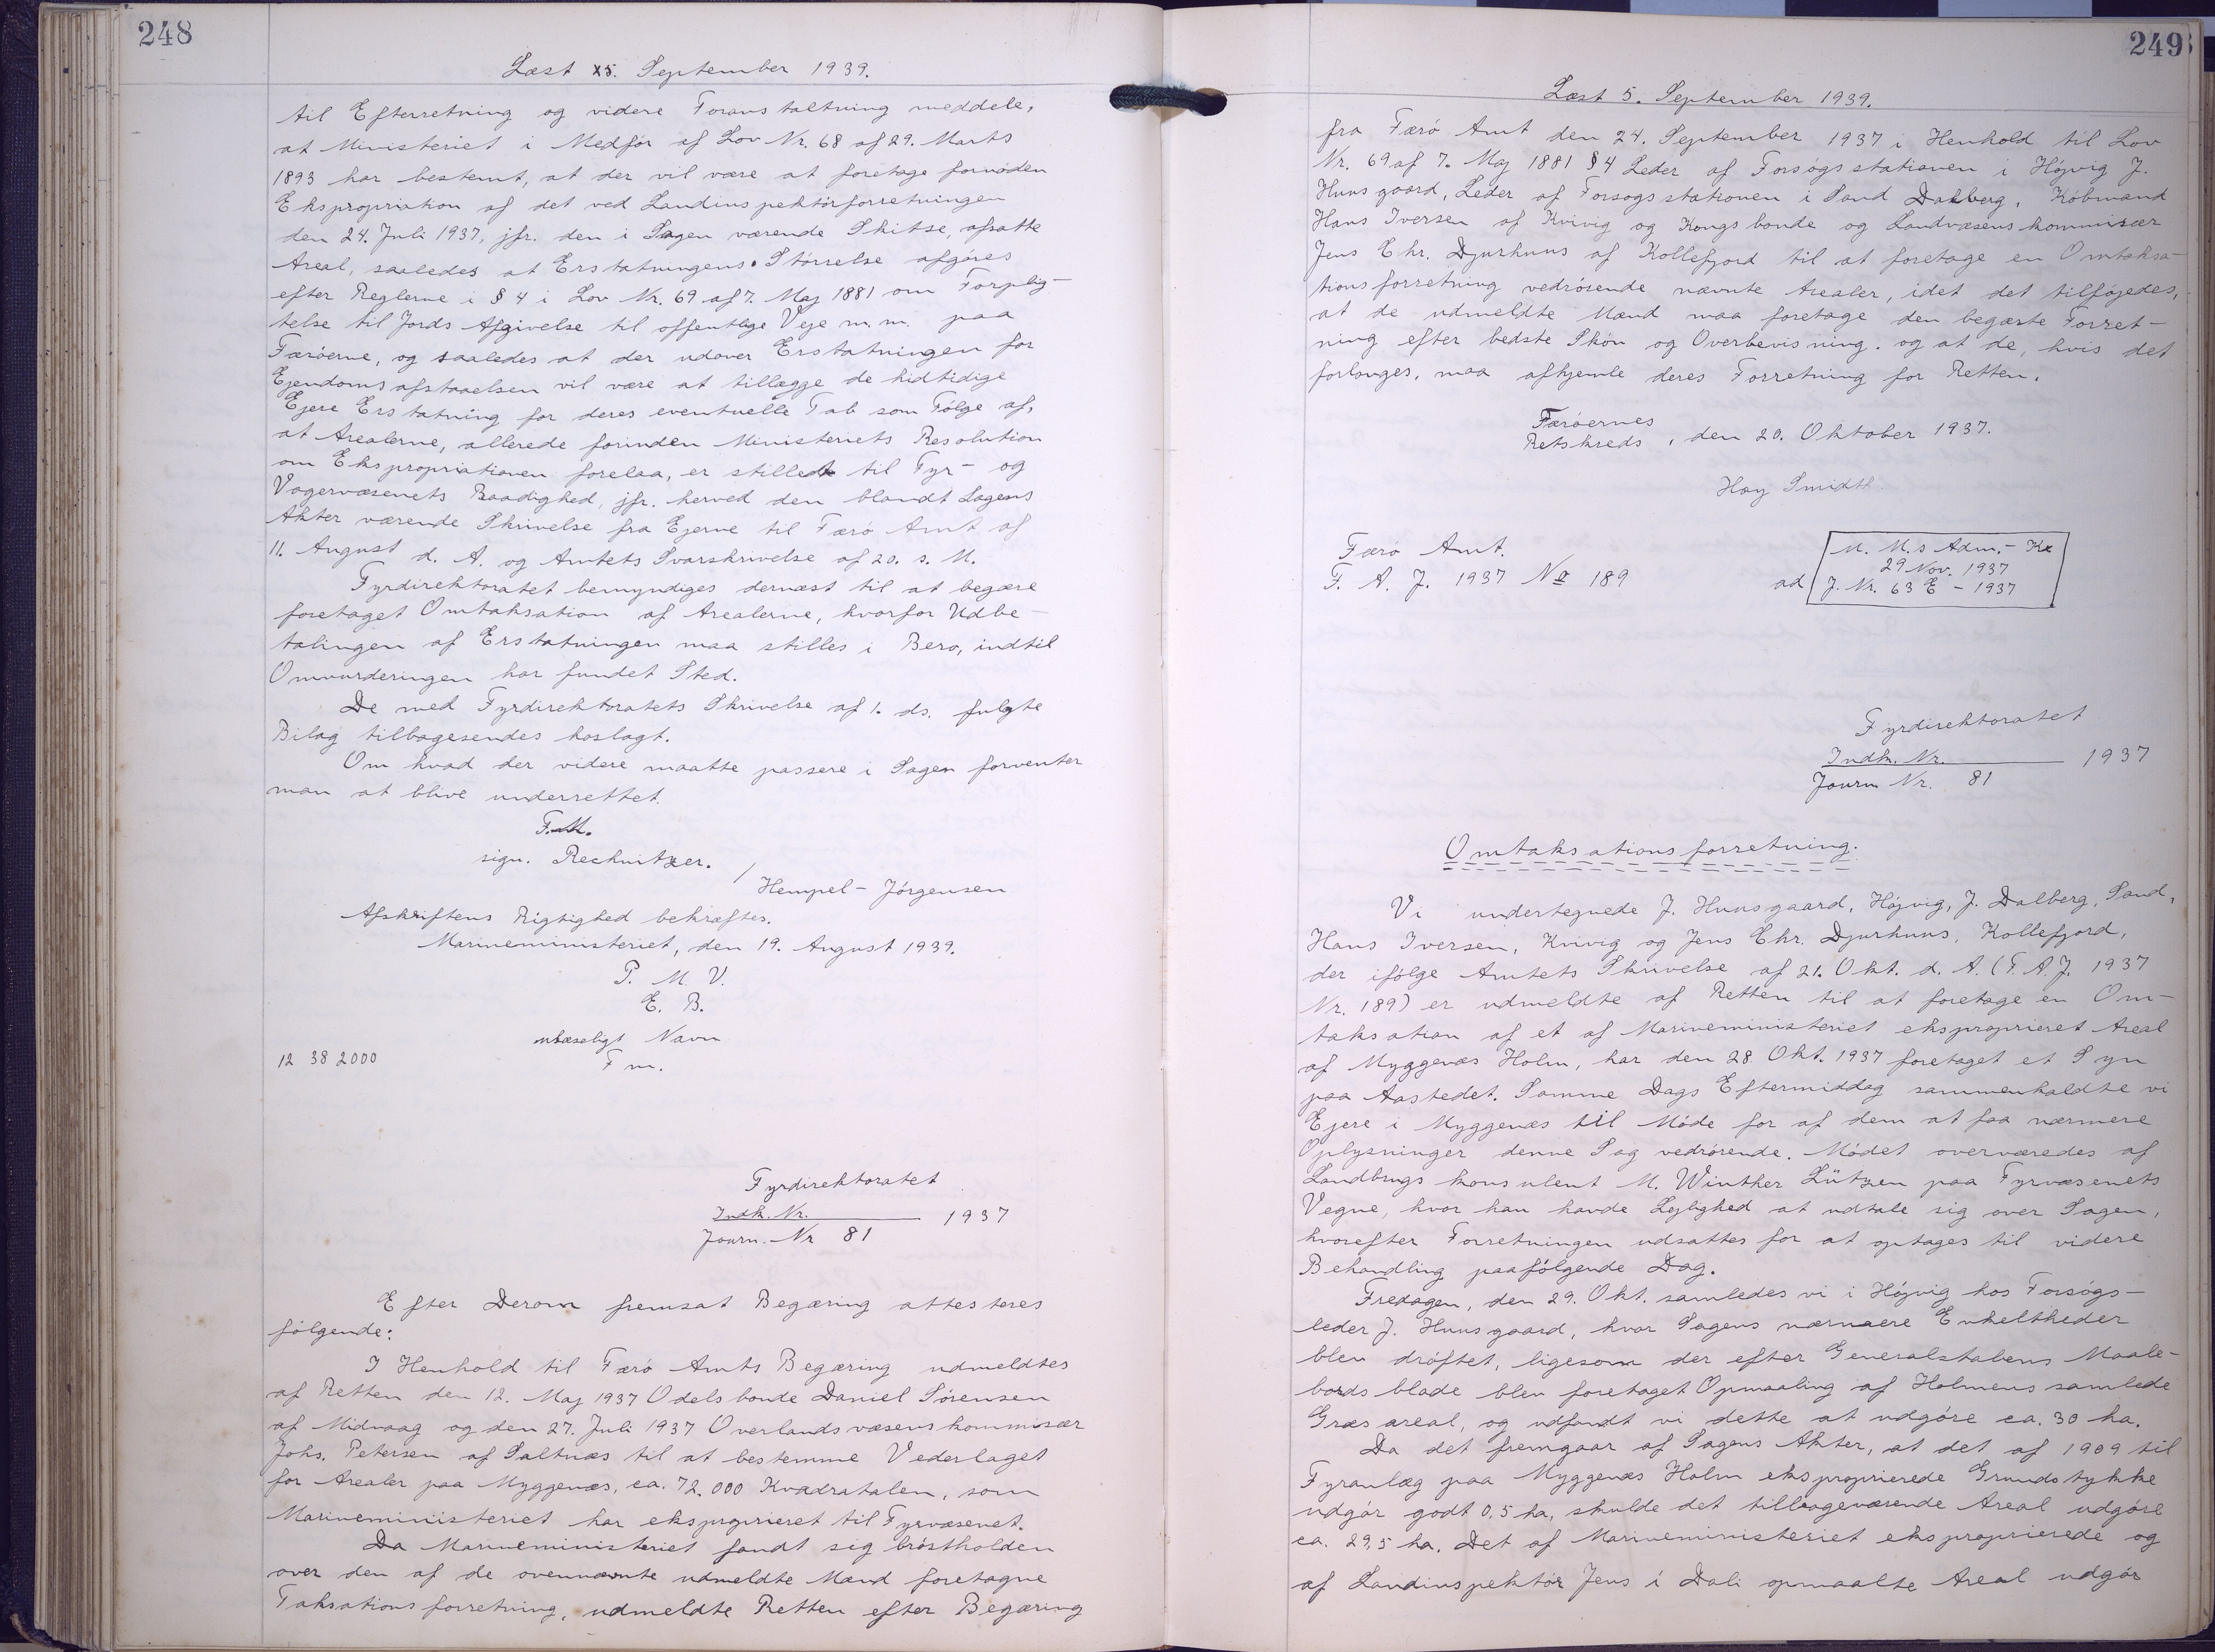 248
Læst 5. September 1939.
til Efterretning og videre Foranstaltning meddele,
at Ministeriet i Medfør af Lov Nr. 68 af 29. Marts
1893 har bestemt, at der vil være at foretage fornøden
Ekspropriation af det ved Landinspektørforretningen
den 24. Juli 1937, jfr. den i Sagen værende Skitse, afsatte
Areal, saaledes at Erstatningens Størrelse afgøres
efter Reglerne i § 4 i Lov Nr. 69 af 7. Maj 1881 om Forplig-
telse til Jords Afgivelse til offentlige Veje m.m. paa
Færøerne, og saaledes at der udover Erstatningen for
Ejendomsafstaaelsen vil være at tillægge de hidtidige
Ejere Erstatning for deres eventuelle Tab som Følge af,
at Arealerne, allerede forinden Ministeriets Resolution
om Ekspropriationen forelaa, er stillet til Fyr- og
Vagervæsenets Raadighed, jfr. herved den blandt Sagens
Akter værende Skrivelse fra Ejerne til Færø Amt af
11. August d. A. og Amtets Svarskrivelse af 20. s. M.
Fyrdirektoratet bemyndiges dernæst til at begære
foretaget Omtaksation af Arealerne, hvorfor Udbe-
talingen af Erstatningen maa stilles i Bero, indtil
Omvurderingen har fundet Sted.
De med Fyrdirektoratets Skrivelse af 1. ds. fulgte
Bilag tilbagesendes hoslagt.
Om hvad der videre maatte passere i Sagen forventer
man at blive underrettet.
F.M.
sign. Rechnitzer.
/ Hempel-Jørgensen
Afskriftens Rigtighed bekræftes.
Marineministeriet, den 19. August 1939.
P. M. V.
E. B.
ulæseligt Navn
F m.
12 38 2000
Fyrdirektoratet
Indk. Nr. 1937
Journ. Nr 81
Efter Derom fremsat Begæring attesteres
følgende:
I Henhold til Færø Amts Begæring udmeldtes
af Retten den 12. Maj 1937 Odelsbonde Daniel Sørensen
af Midvaag og den 27. Juli 1937 Overlandsvæsenskommisær
Johs. Petersen af Saltnæs til at bestemme Vederlaget
for Arealer paa Myggenæs, ca. 72.000 Kvadratalen, som
Marineministeriet har eksproprieret til Fyrvæsenet.
Da Marineministeriet fandt sig brøstholden
over den af de ovennævnte udmeldte Mænd foretagne
Taksationsforretning, udmeldte Retten efter Begæring
249
Læst 5. September 1939.
fra Færø Amt den 24. September 1937 i Henhold til Lov
Nr. 69 af 7. Maj 1881 § 4 Leder af Forsøgsstationen i Højvig J.
Hunsgaard, Leder af Forsøgsstationen i Sand Dalberg, Købmand
Hans Iversen af Kvivig og Kongsbonde og Landvæsenskommisær
Jens Chr. Djurhuus af Kollefjord til at foretage en Omtaksa-
tionsforretning vedrørende nævnte Arealer, idet det tilføjedes,
at de udmeldte Mænd maa foretage den begærte Forret-
ning efter bedste Skøn og Overbevisning. og at de, hvis det
forlanges, maa afhjemle deres Forretning for Retten.
Færøernes
Retskreds, den 20. Oktober 1937.
Hay Smidth.
Færø Amt.
F. A. J. 1937 No 189
M. M.s Adm.- K
29 Nov. 1937
ad J. Nr. 63 E - 1937
Fyrdirektoratet
Indk. Nr. 1937
Journ Nr. 81
Omtaksationsforretning.
Vi undertegnede J. Hunsgaard, Højvig, J. Dalberg, Sand,
Hans Iversen, Kvivig og Jens Chr. Djurhuus, Kollefjord,
der ifølge Amtets Skrivelse af 21. Okt. d. A. (F.A.J. 1937
Nr. 189) er udmeldte af Retten til at foretage en Om-
taksation af et af Marineministeriet eksproprieret Areal
af Myggenæs Holm, har den 28. Okt. 1937 foretaget et Syn
paa Aastedet. Samme Dags Eftermiddag sammenkaldte vi
Ejere i Myggenæs til Møde for af dem at faa nærmere
Oplysninger denne Sag vedrørende. Mødet overværedes af
Landbrugskonsulent M. Winther Lützen paa Fyrvæsenets
Vegne, hvor han havde Lejlighed at udtale sig over Sagen,
hvorefter Forretningen udsattes for at optages til videre
Behandling paafølgende Dag.
Fredagen, den 29. Okt. samledes vi i Højvig hos Forsøgs-
leder J. Hunsgaard, hvor Sagens nærmere Enkeltheder
blev drøftet, ligesom der efter Generalstabens Maale-
bords blade blev foretaget Opmaaling af Holmens samlede
Græsareal, og udfandt vi dette at udgøre ca. 30 ha.
Da det fremgaar af Sagens Akter, at det af 1909 til
Fyranlæg paa Myggenæs Holm eksproprierede Grundstykke
udgør godt 0,5 ha, skulde det tilbageværende Areal udgøre
ca. 29,5 ha. Det af Marineministeriet eksproprierede og
af Landinspektør Jens i Dali opmaalte Areal udgør